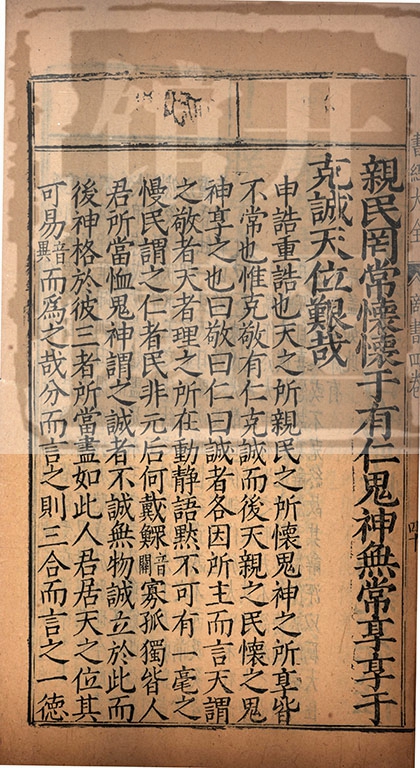 親民罔常懷懷于有仁鬼神無常享享于
克誠天位艱哉
申誥重誥也天之所親民之所懷鬼神之所享皆
不常也惟克敬有仁克誠而後天親之民懷之鬼
神享之也曰敬曰仁曰誠者各因所主而言天謂
之敬者天者理之所在動靜語黙不可有一毫之
慢民謂之仁者民非元后何戴鰥音關寡孤獨皆人
君所當恤鬼神謂之誠者不誠無物誠立於此而
後神格於彼三者所當盡如此人君居天之位其
可易音異而爲之哉分而言之則三合而言之一德